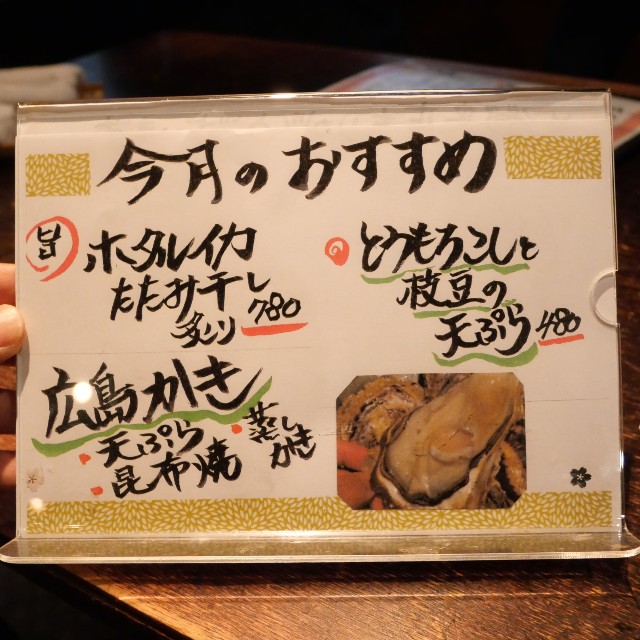 今月のおすすめ
旨
ホタルイカ
たたみ干し
炙り 780
とうもろこしと
枝豆の
天ぷら 480
広島かき
天ぷら
昆布焼
蒸し
がき